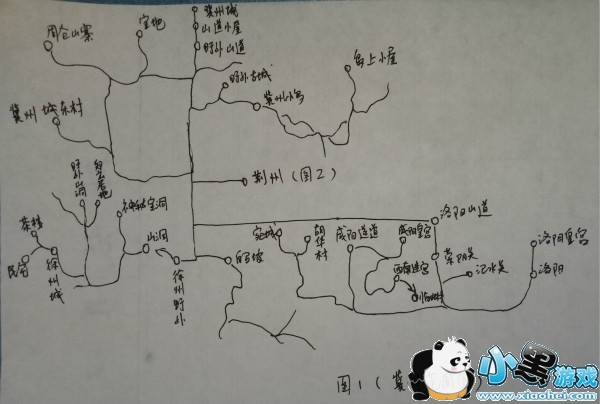 冀州城
山道小屋
野外山道
周仓山寨
宝地
野外古城
岛上小屋
冀州小岛
冀州城东村
荆州(图2)
野外山洞
神秘宝洞
茶楼
民宅
徐州城
山洞
徐州野外
白马坡
宛城
胡华村
咸阳道道
咸阳皇宫
西南迷宫
洛阳山道
荥阳关
汜水关
洛阳皇宫
洛阳
图1(冀
小黑游戏
www.xiaohei.com